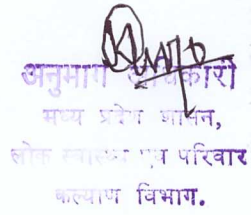 अनुभाग अधिकारी
मध्य प्रदेश शासन,
लोक स्वास्थ्य एवं परिवार
कल्याण विभाग.